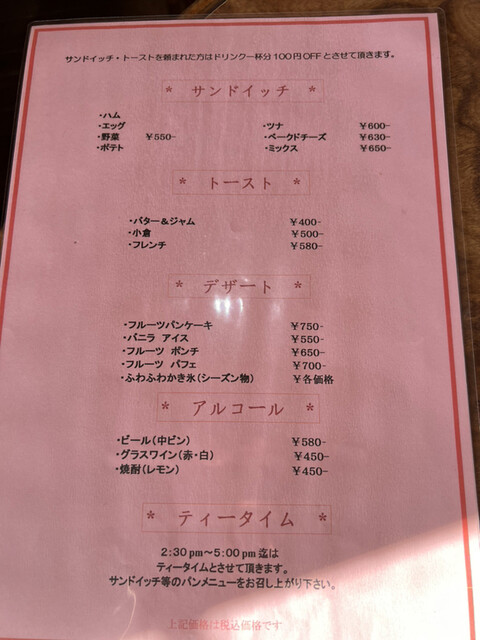 サンドイッチ・トーストを頼まれた方はドリンク一杯分100円OFFとさせて頂きます。
* サンドイッチ *
・ハム
・エッグ ・ツナ ¥600-
・野菜 ¥550- ・ベークドチーズ ¥630-
・ポテト ・ミックス ¥650-
* トースト *
・バター&ジャム ¥400-
・小倉 ¥500-
・フレンチ ¥580-
* デザート *
・フルーツパンケーキ ¥750-
・バニラ アイス ¥550-
・フルーツ ポンチ ¥650-
・フルーツ パフェ ¥700-
・ふわふわかき氷(シーズン物) ¥各価格
* アルコール *
・ビール(中ビン) ¥580-
・グラスワイン(赤・白) ¥450-
・焼酎(レモン) ¥450-
* ティータイム *
2:30pm〜5:00pm迄は
ティータイムとさせて頂きます。
サンドイッチ等のパンメニューをお召し上がり下さい。
上記価格は税込価格です